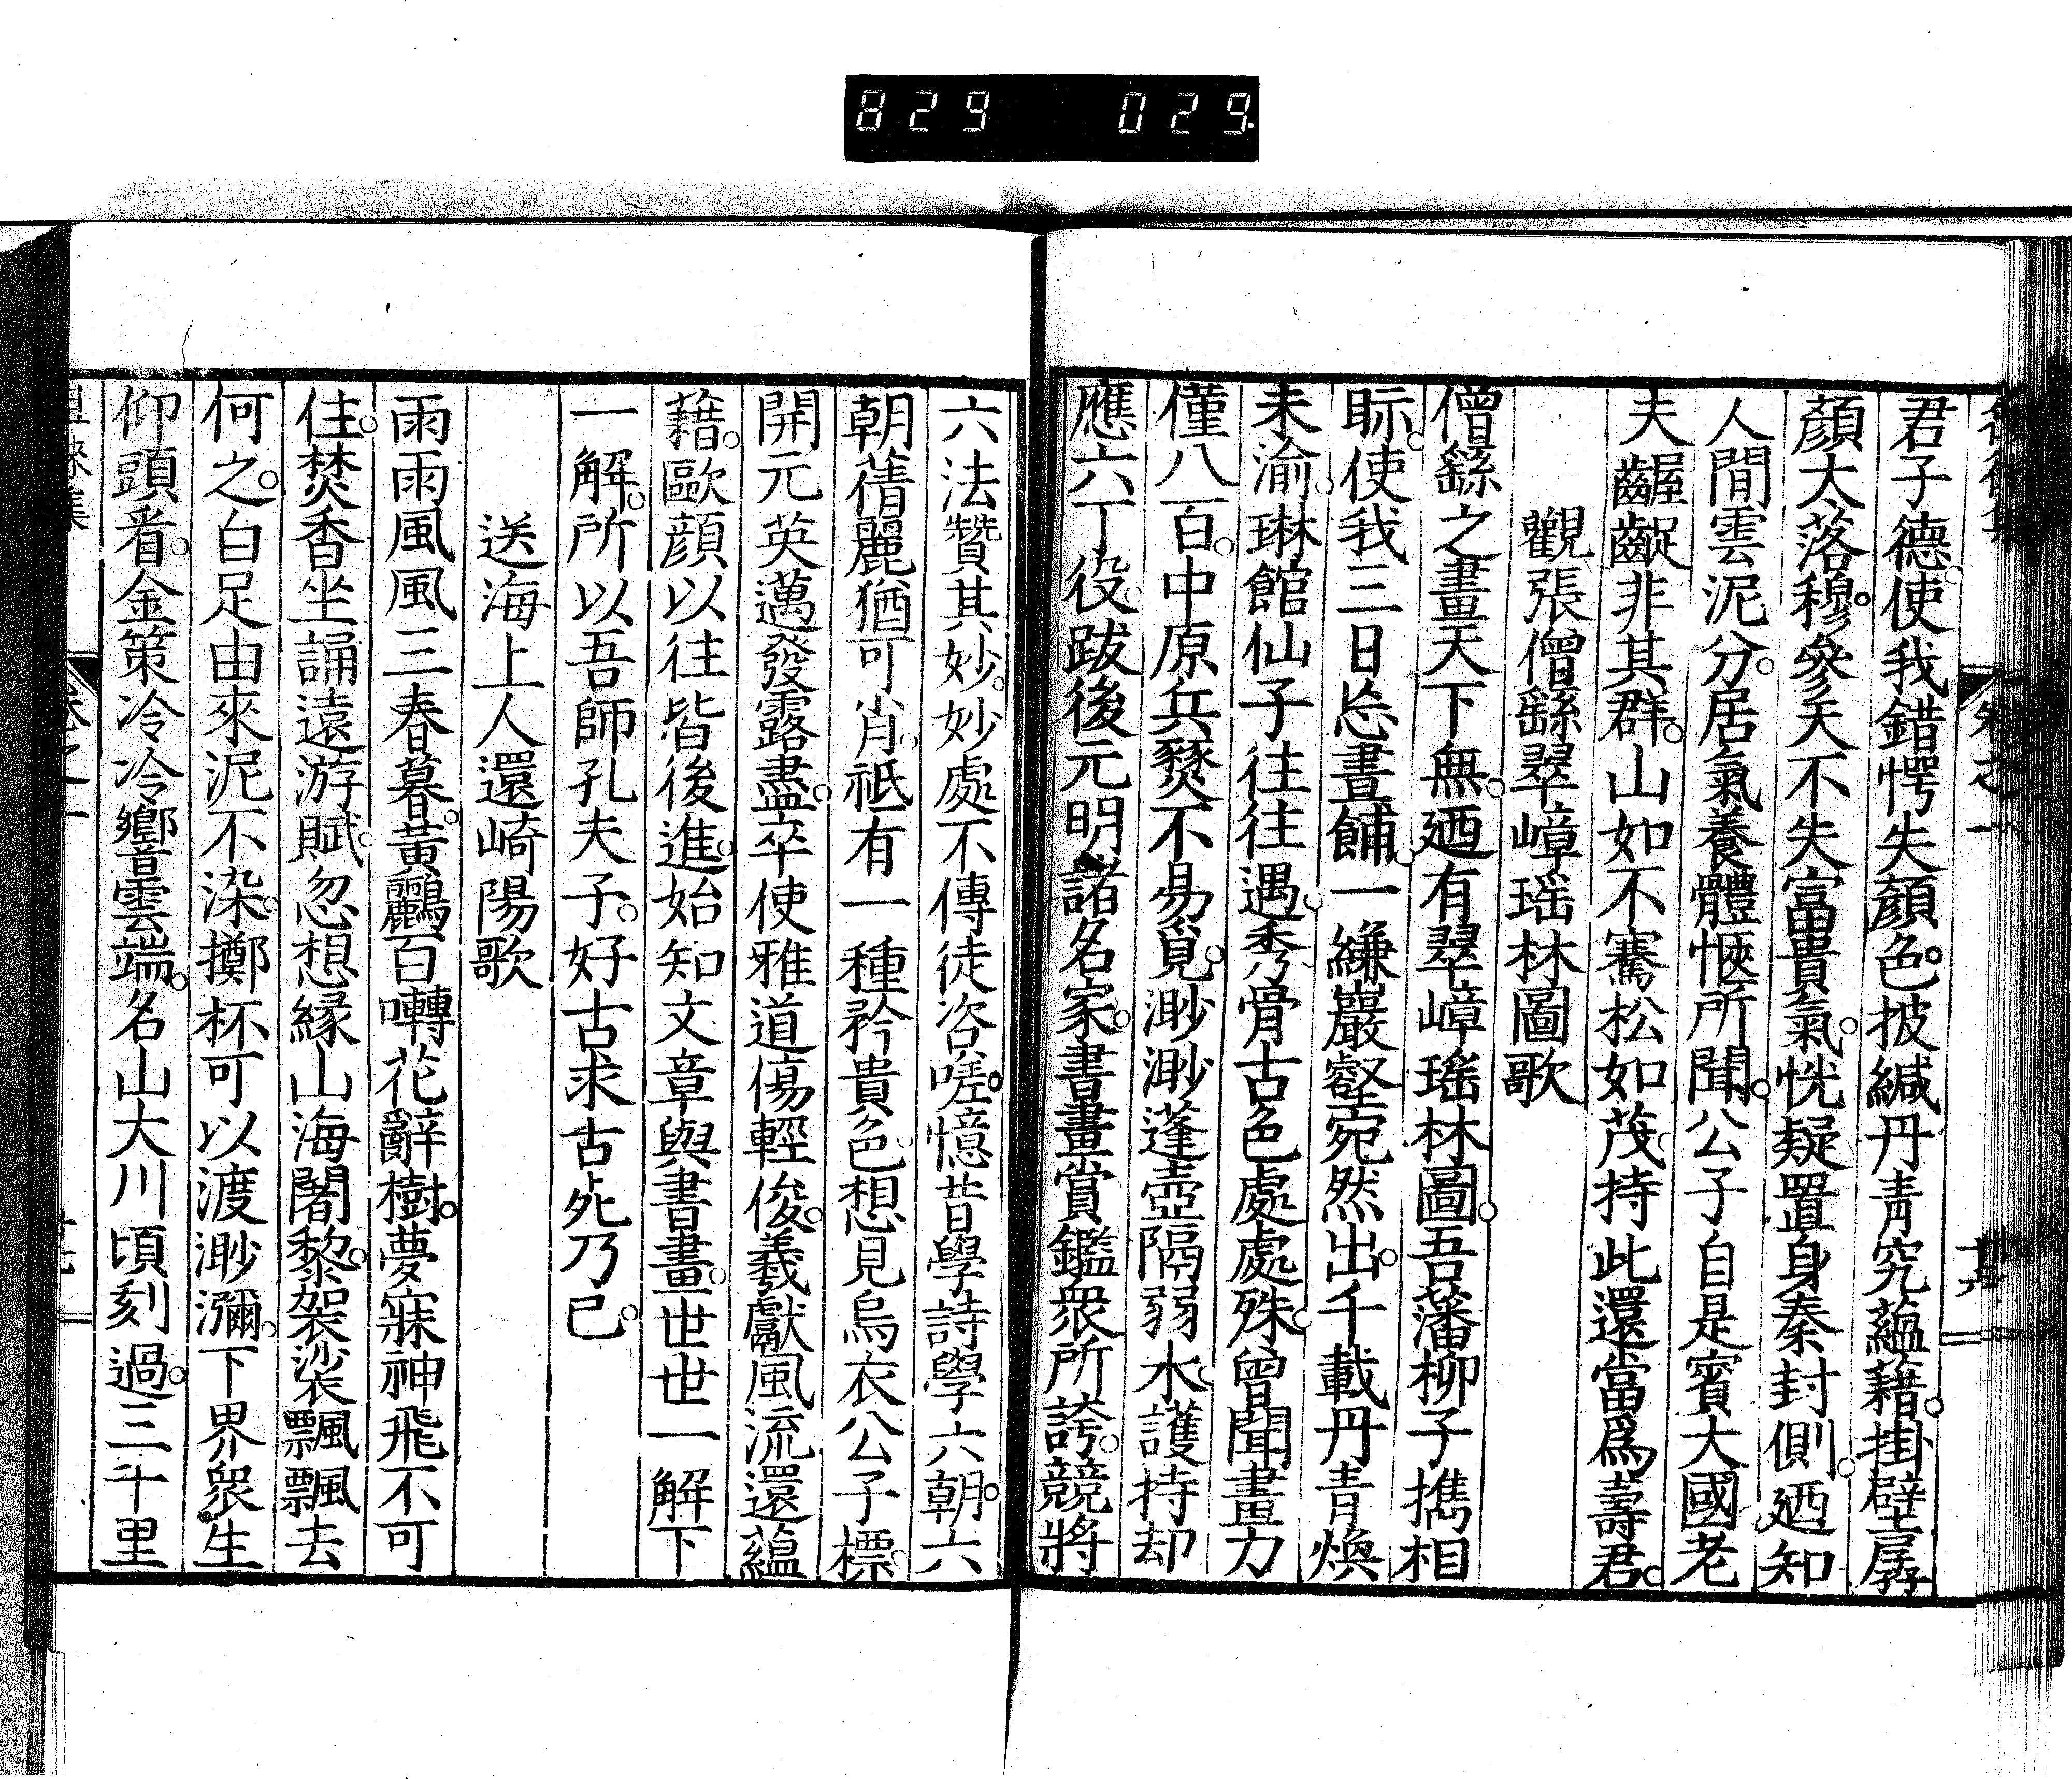 829 029.
君子德。使我錯愕失顏色。披緘丹青究蘊藉。掛壁孱
顏大落穆。參天不失富貴氣。恍疑置身秦封側。廼知
人間雲泥分。居氣養體愜所聞。公子自是賓大國。老
夫齷齪非其群。山如不騫松如茂。持此還當爲壽君。
觀張僧繇翠嶂瑤林圖歌
僧繇之畫天下無。廼有翠嶂瑤林圖。吾藩柳子攜相
眎。使我三日忘晝餔。一縑巖壑宛然出。千載丹青煥
未渝。琳館仙子往往遇。秀骨古色處處殊。曾聞畫力
僅八百。中原兵燹不易覓。渺渺蓬壺隔弱水。護持却
應六丁役。跋後元明諸名家。書畫賞鑑衆所誇。競將
六法贊其妙。妙處不傳徒咨嗟。憶昔學詩學六朝。六
朝蒨麗猶可肖。祇有一種矜貴色。想見烏衣公子標。
開元英邁發露盡。卒使雅道傷輕俊。羲獻風流還蘊
藉。歐顏以往皆後進。始知文章與書畫。世世一解下
一解。所以吾師孔夫子。好古求古死乃已。
送海上人還崎陽歌
雨雨風風三春暮。黃鸝百囀花辭樹。夢寐神飛不可
住。焚香坐誦遠游賦。忽想緣山海闍黎。袈裟飄飄去
何之。白足由來泥不染。擲杯可以渡渺瀰。下界衆生
仰頭看。金策冷冷響雲端。名山大川頃刻過。三千里
徂徠集 卷之一